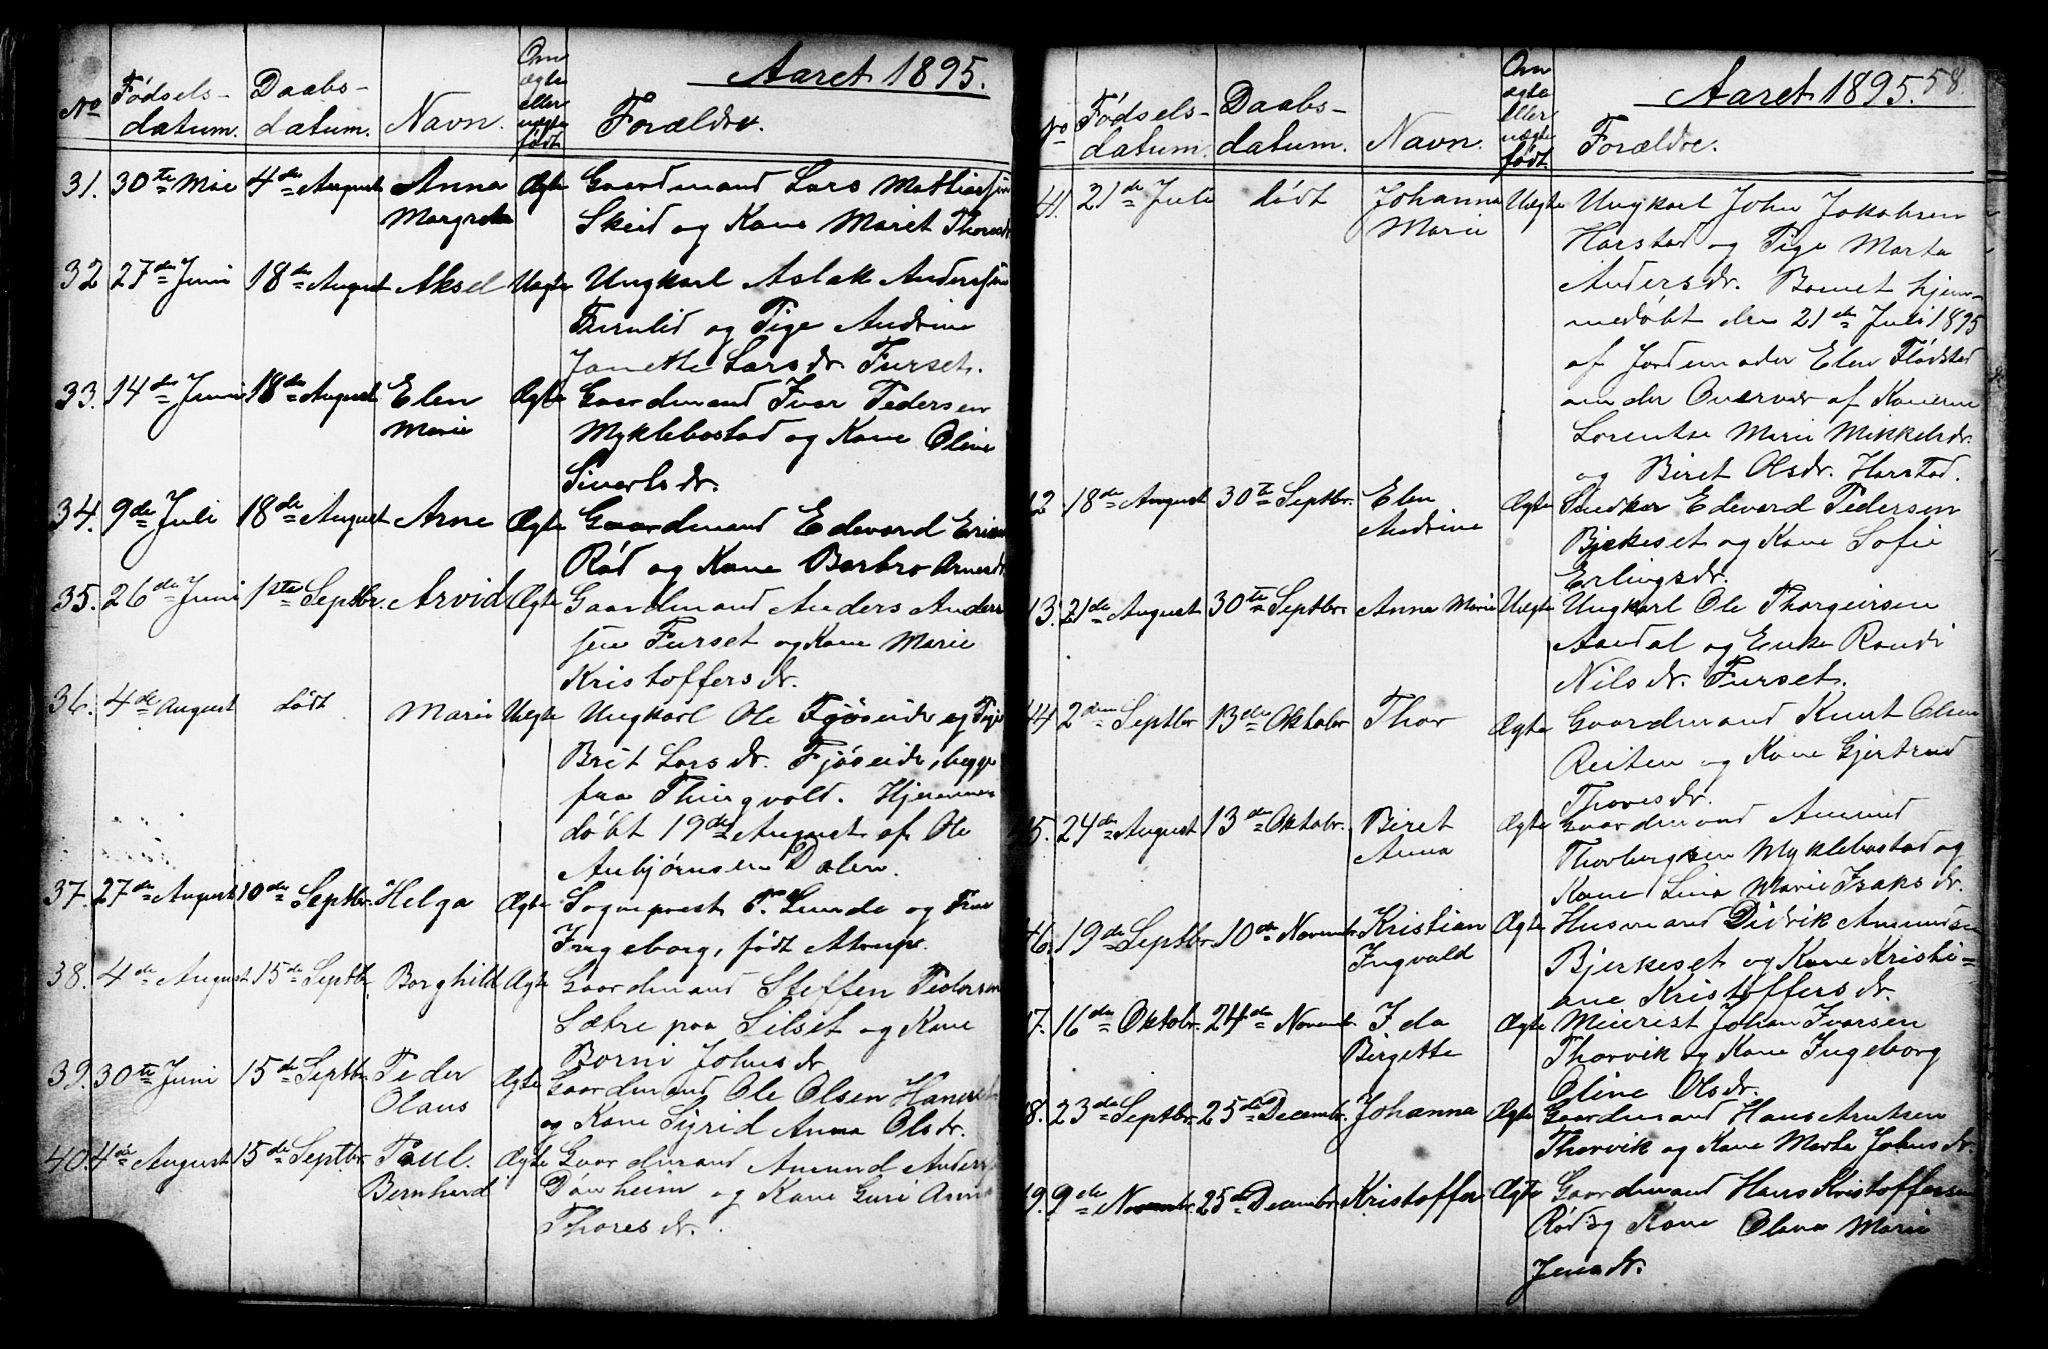 Aaret 1895.
No Fødsels-datum. Daabs-datum. Navn. Om ægte eller uægte født Forældre.
31. 30te Mai 4de August Anna Ægte Gaardmand Lars Mathiassen
Margreta Skeid og Kone Marit Thoresdr
32 27de Juni 18de August Aksel Uægte Ungkarl Aslak Anderssen
og Pige Andrine
Janette Larsdr Furset.
33. 14de Juni 18de August Elen Ægte Gaardmand Ivar Pedersen
Marie Myklebostad og Kone Oline
Siverts dr.
34. 9de Juli 18de August Arne Ægte Gaardmand Edevard
Rød og Kone Barbro Arnesdr
35. 26de Juni 1ste Septbr. Arvid Ægte Gaardmand Anders Anders
sen Furset og Kone Marie
Kristoffersdr.
36. 4de August født Marie Uægte Ungkarl Ole Fjøseide og Pige
Brit Larsdr. Fjøseide, begge
fra Thingvold. Hjemme
døbt 19de August af Ole
Anbjørnsen Dalen.
37. 27de August 10de Septbr. Helga Ægte Sogneprest P. Lunde og Frue
Ingeborg, født Atrup.
38. 4de August 15de Septbr Borghild Ægte Gaardmand Steffen Pedersen
Sætre paa Silset og Kone
Borni Johnsdr
39. 30te Juni 15de Septbr Peder Ægte Gaardmand Ole Olsen
Olaus og Kone Sigrid Anna Olsdr.
40. 4de August 15de Septbr Paul Ægte Gaardmand Amund Anders
Bernhard og Kone Guri Anna
Thoresdr.
Aaret 1895. 58.
No Fødsels-datum. Daabs-datum. Navn. Om ægte eller uægte født. Forældre.
41. 21de Juli født Johanna Uægte Ungkarl John Jakobsen
Marie Harstad og Pige Marta
Andersdr. Barnet hjem-
medøbt den 21de Juli 1895
af Jordemoder Elen Flødstad
under Overvær af Konerne
Lorentse Marie Mikkelsdr.
og Biret Olsdr. Harstad.
42 18de August 30te Septbr. Elen Ægte Edevard Pedersen
Andrine Bjerkeset og Kone Sofie
Erlingsdr.
13. 21de August 30te Septbr Anna Marie Uægte Ungkarl Ole Thorgeirsen
Aandal og Enke Randi
Nilsdr. Furset.
44 2den Septbr 13de Oktobr Thor Ægte Gaardmand Knut Olsen
Reiten og Kone Gjertrud
Thoresdr.
45. 24de August 13de Oktobr. Biret Ægte Gaardmand Amund
Anna Thorbergsen Myklebostad og
Kone Lina Marie Isaksdr.
46. 19de Septbr 10de Novembr Kristian Ægte Husmand Didrik Amundsen
Ingvald Bjerkeset og Kone Kristi-
ane Kristoffersdr.
47. 16de Oktobr. 24de Novembr Ida Ægte Meierist Johan Ivarsen
Birgette Thorvik og Kone Ingeborg
Oline Olsdr.
48. 23de Septbr. 25de Decembr. Johanna Ægte Gaardmand Hans Knutsen
Thorvik og Kone Marta Johnsdr.
49. 9de Novembr. 25de Decembr. Kristoffer Ægte Gaardmand Hans Kristoffersen
Rød og Kone Olava Marie
Jensdr.